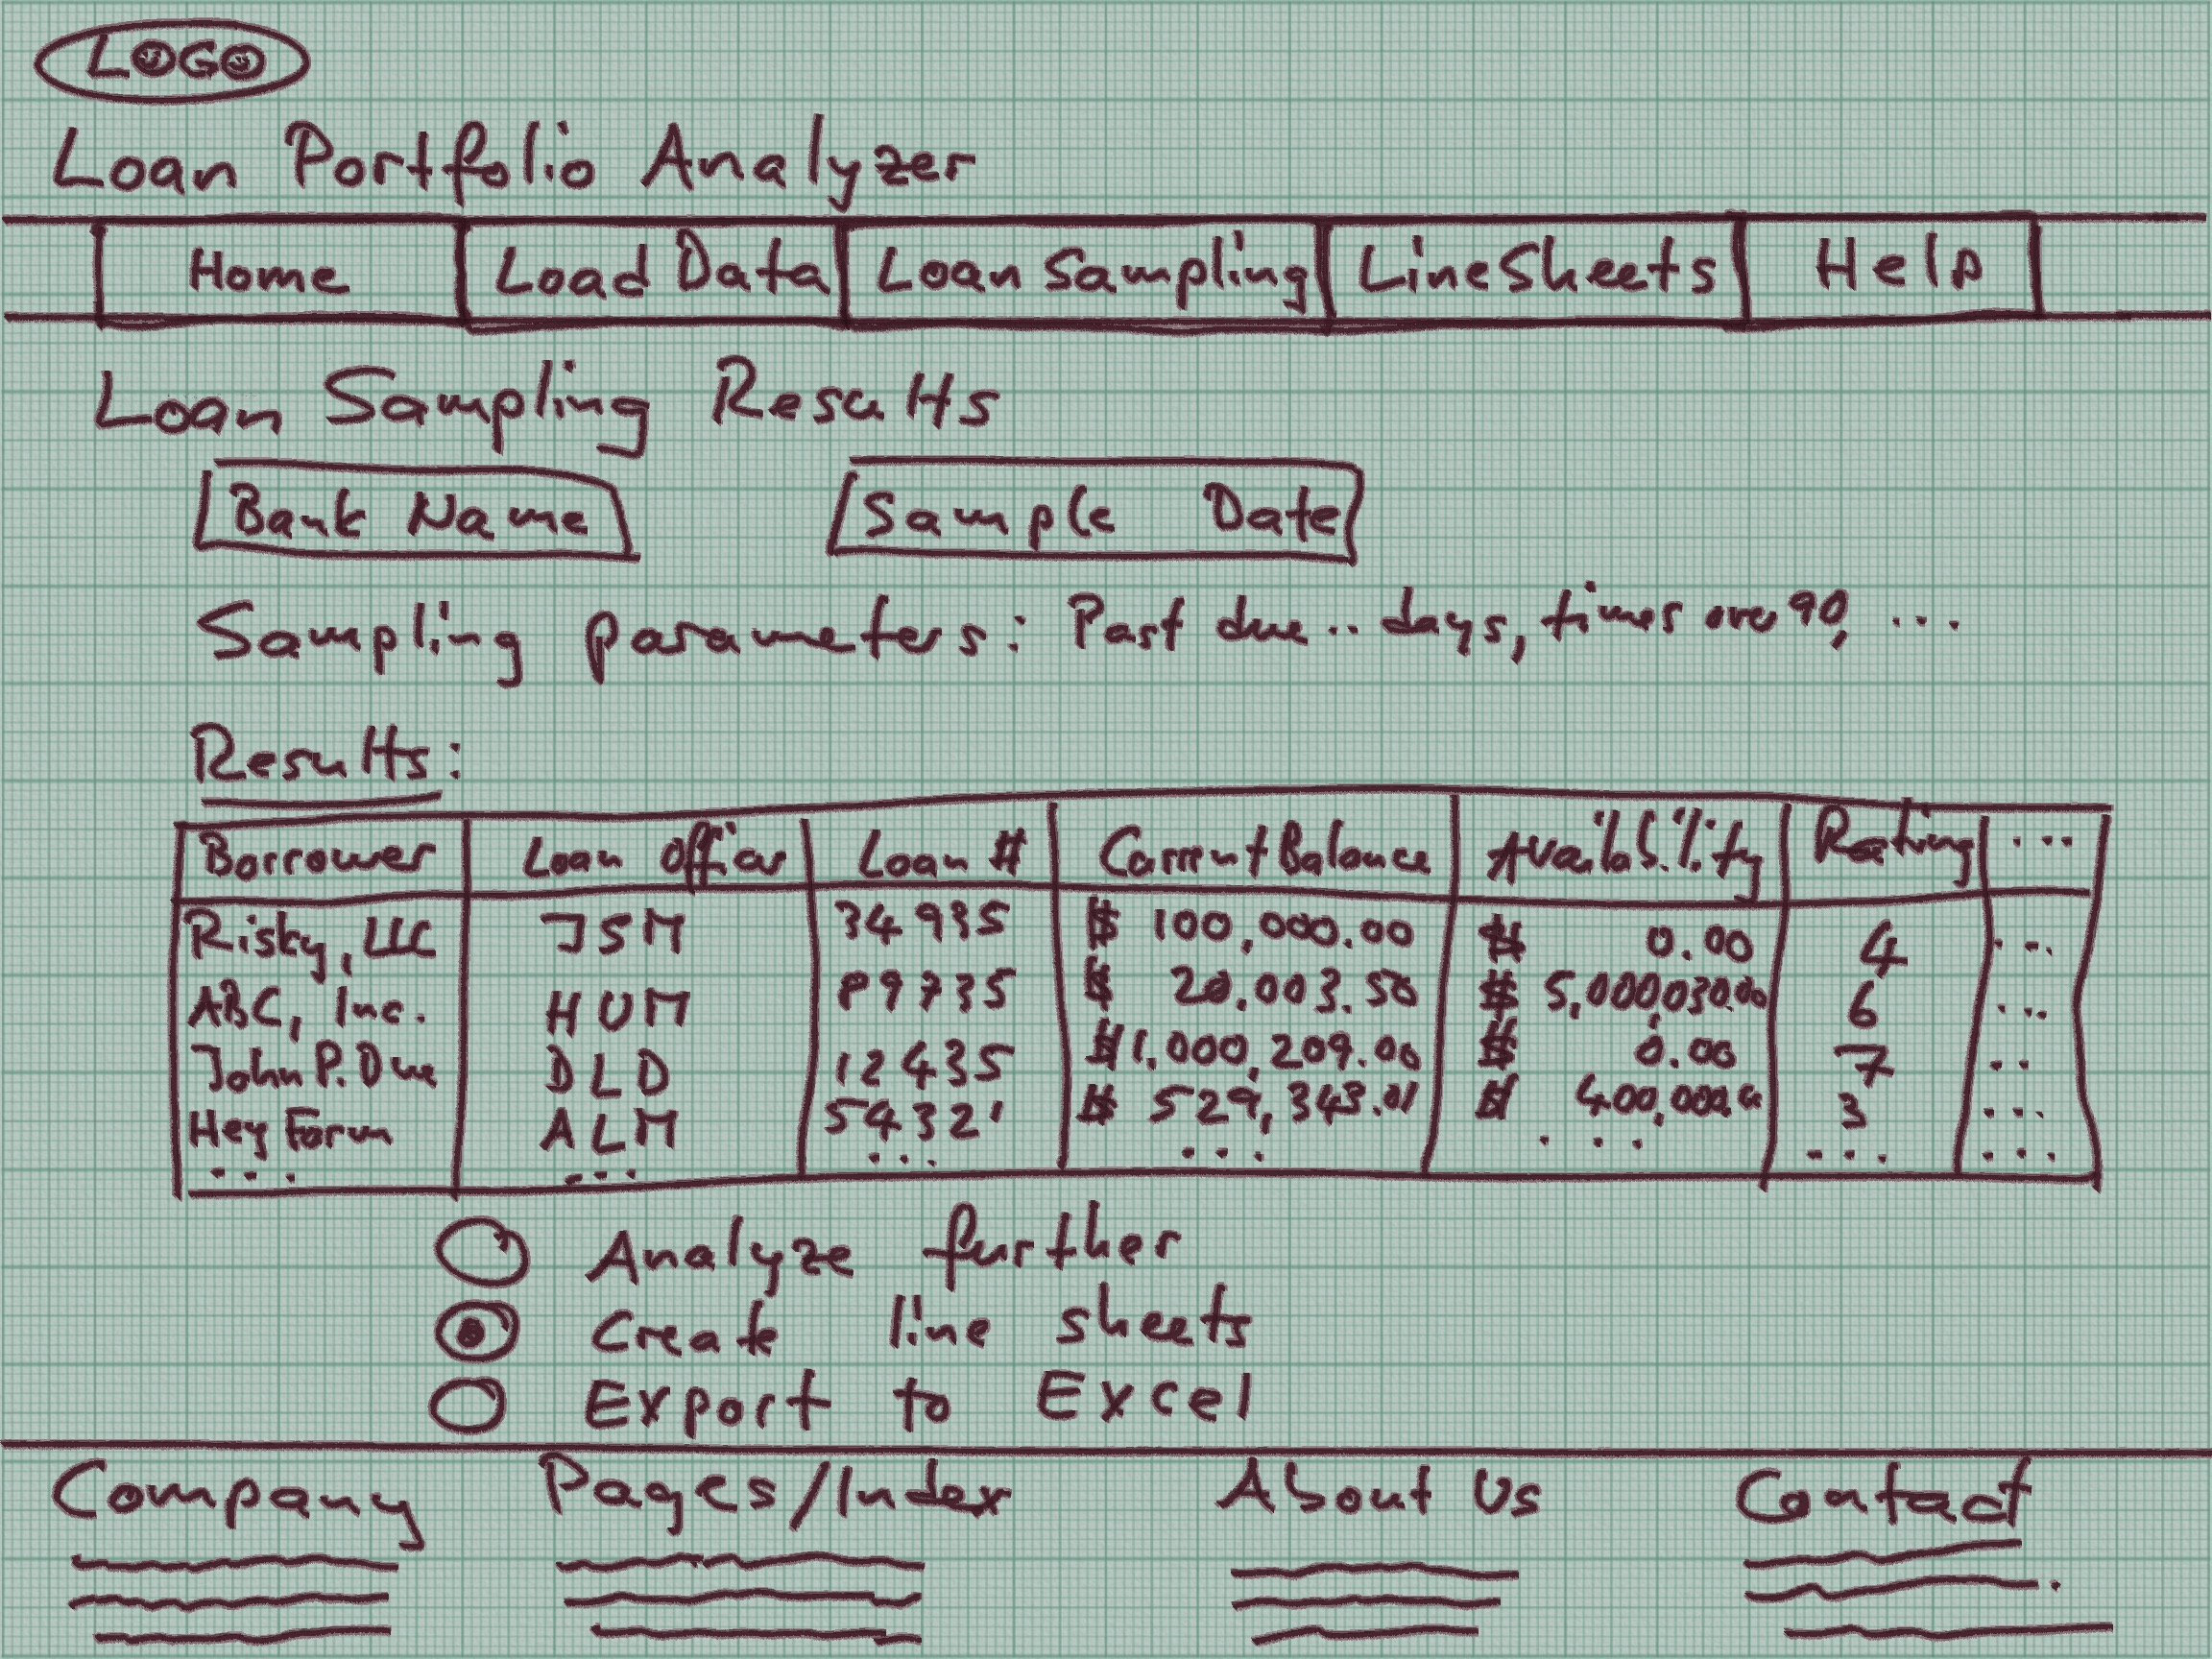 LOGO
Loan Portfolio Analyzer
Home Load Data Loan Sampling Line Sheets Help
Loan Sampling Results
Bank Name Sample Date
Sampling parameters: Past due .. days, times over 90, ...
Results:
Borrower Loan Officer Loan # Current Balance Availability Rating ...
Risky, LLC JSM 34935 $ 100,000.00 $ 0.00 4 ...
ABC, Inc. HUM 89735 $ 20,003.50 $ 6 ...
John P. Due DLD 12435 $ 1,000,209.00 $ 0.00 7 ...
Hey Farm ALM 54321 $ 529,343.01 $ 3 ...
... ... ... ... ... ... ...
Analyze further
Create line sheets
Export to Excel
Company Pages/Index About Us Contact